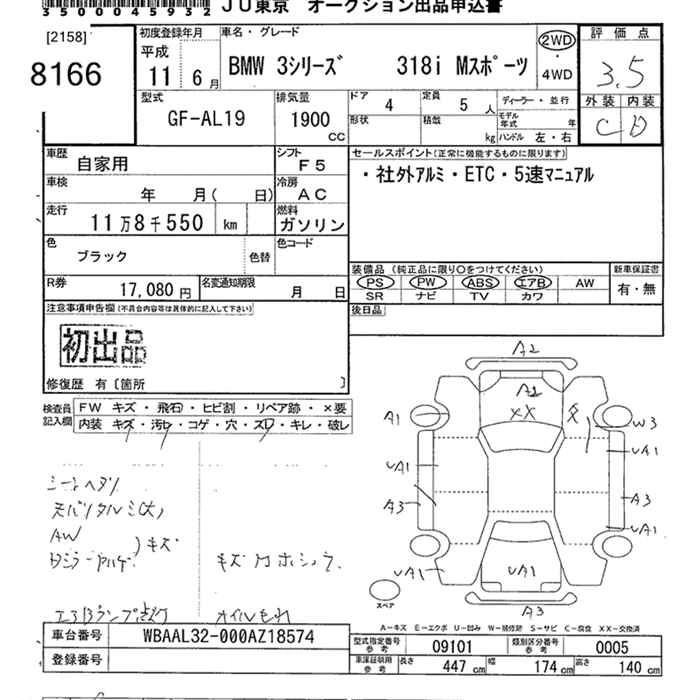 35000459 32 JU東京 オークション出品申込書
[2158]
8166
初度登録年月
平成
11 6月
車名・グレード
BMW 3シリーズ 318i Mスポーツ
2WD
・
4WD
評価点
3.5
外装 内装
C D
型式
GF-AL19
排気量
1900
CC
ドア
4
定員
5人
形状
積載
kg
ディーラー・並行
モデル年式 年
ハンドル 左・右
車歴
自家用
シフト
F5
車検
年 月( 日)
冷房
AC
走行
11万8千550 km
燃料
ガソリン
色
ブラック
色替
色コード
R券
17,080円
名変通知期限
月 日
セールスポイント(正常に機能するものに限ります)
・社外アルミ・ETC・5速マニュアル
装備品(純正品に限り○をつけてください)
PS PW ABS エアB AW
SR ナビ TV カワ
新車保証書
有・無
後日品
注意事項申告欄(不具合内容等は具体的に記入して下さい)
初出品
修復歴 有〔箇所 〕
検査員記入欄
FW キズ・飛石・ヒビ割・リペア跡・×要
内装 キズ・汚レ・コゲ・穴・スレ・キレ・破レ
シートヘタリ
AW
キズ
エアBランプ点灯
オイルもれ
A2
A2
XX
A1
W3
UA1
UA1
A3
A3
UA1
UA1
UA1
A3
スペア
A-キズ E-エクボ U-凹み W-補修跡 S-サビ C-腐食 XX-交換済
車台番号
WBAAL32-000AZ18574
登録番号
型式指定番号
参考
09101
類別区分番号
参考
0005
車庫証明用
参考
長さ
447cm
幅
174cm
高さ
140cm